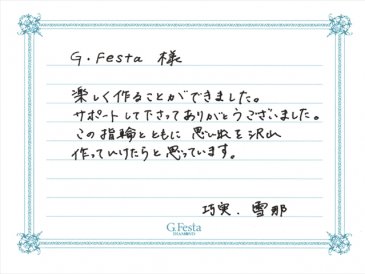 G.Festa 様
楽しく作ることができました。
サポートして下さってありがとうございました。
この指輪とともに思い出を沢山
作っていけたらと思っています。
巧実. 雪那
G.Festa
DIAMOND